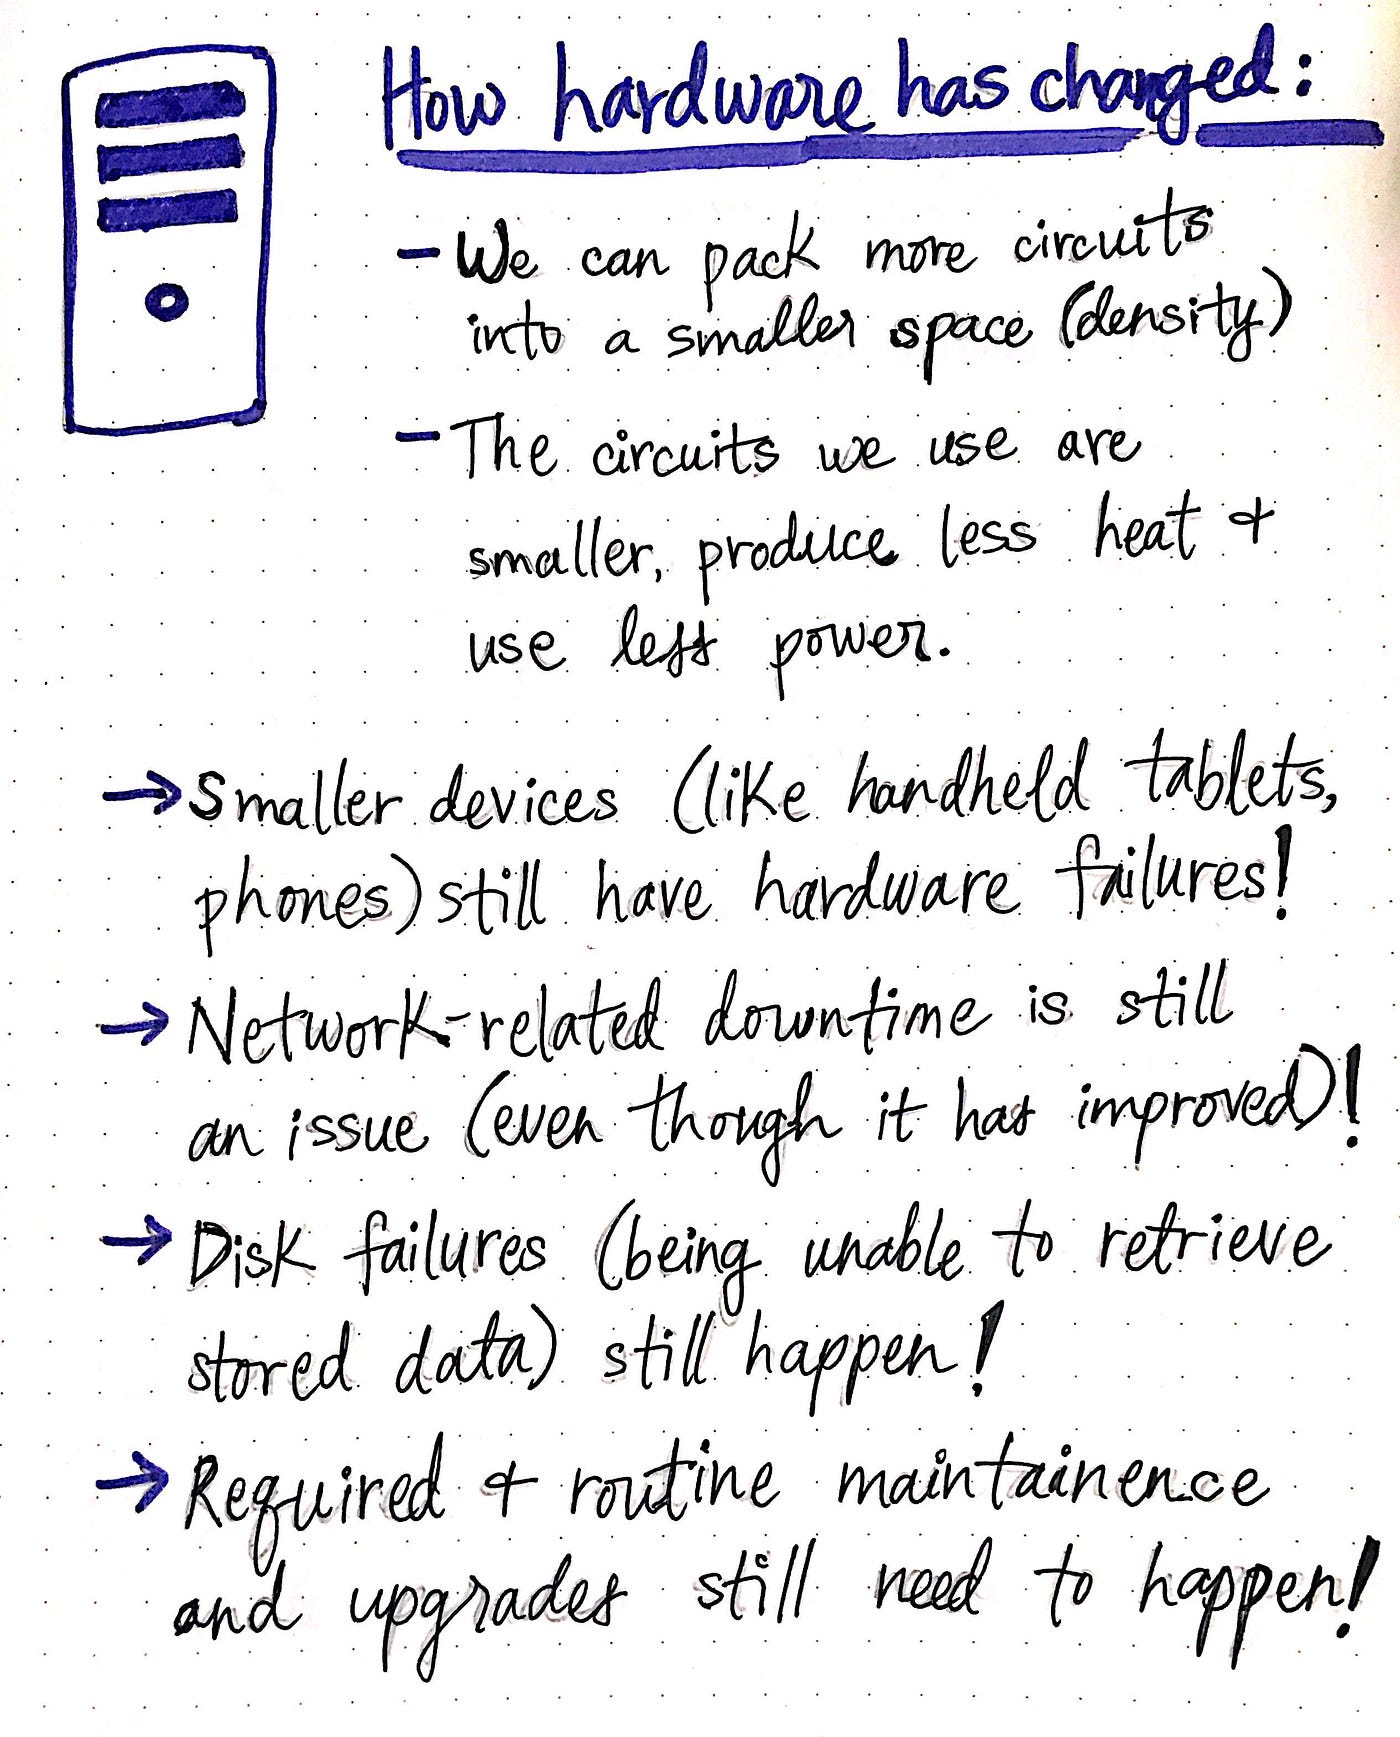 How hardware has changed:
- We can pack more circuits
into a smaller space (density)
- The circuits we use are
smaller, produce less heat &
use less power.
→ Smaller devices (like handheld tablets,
phones) still have hardware failures!
→ Network-related downtime is still
an issue (even though it has improved)!
→ Disk failures (being unable to retrieve
stored data) still happen!
→ Required & routine maintainence
and upgrades still need to happen!